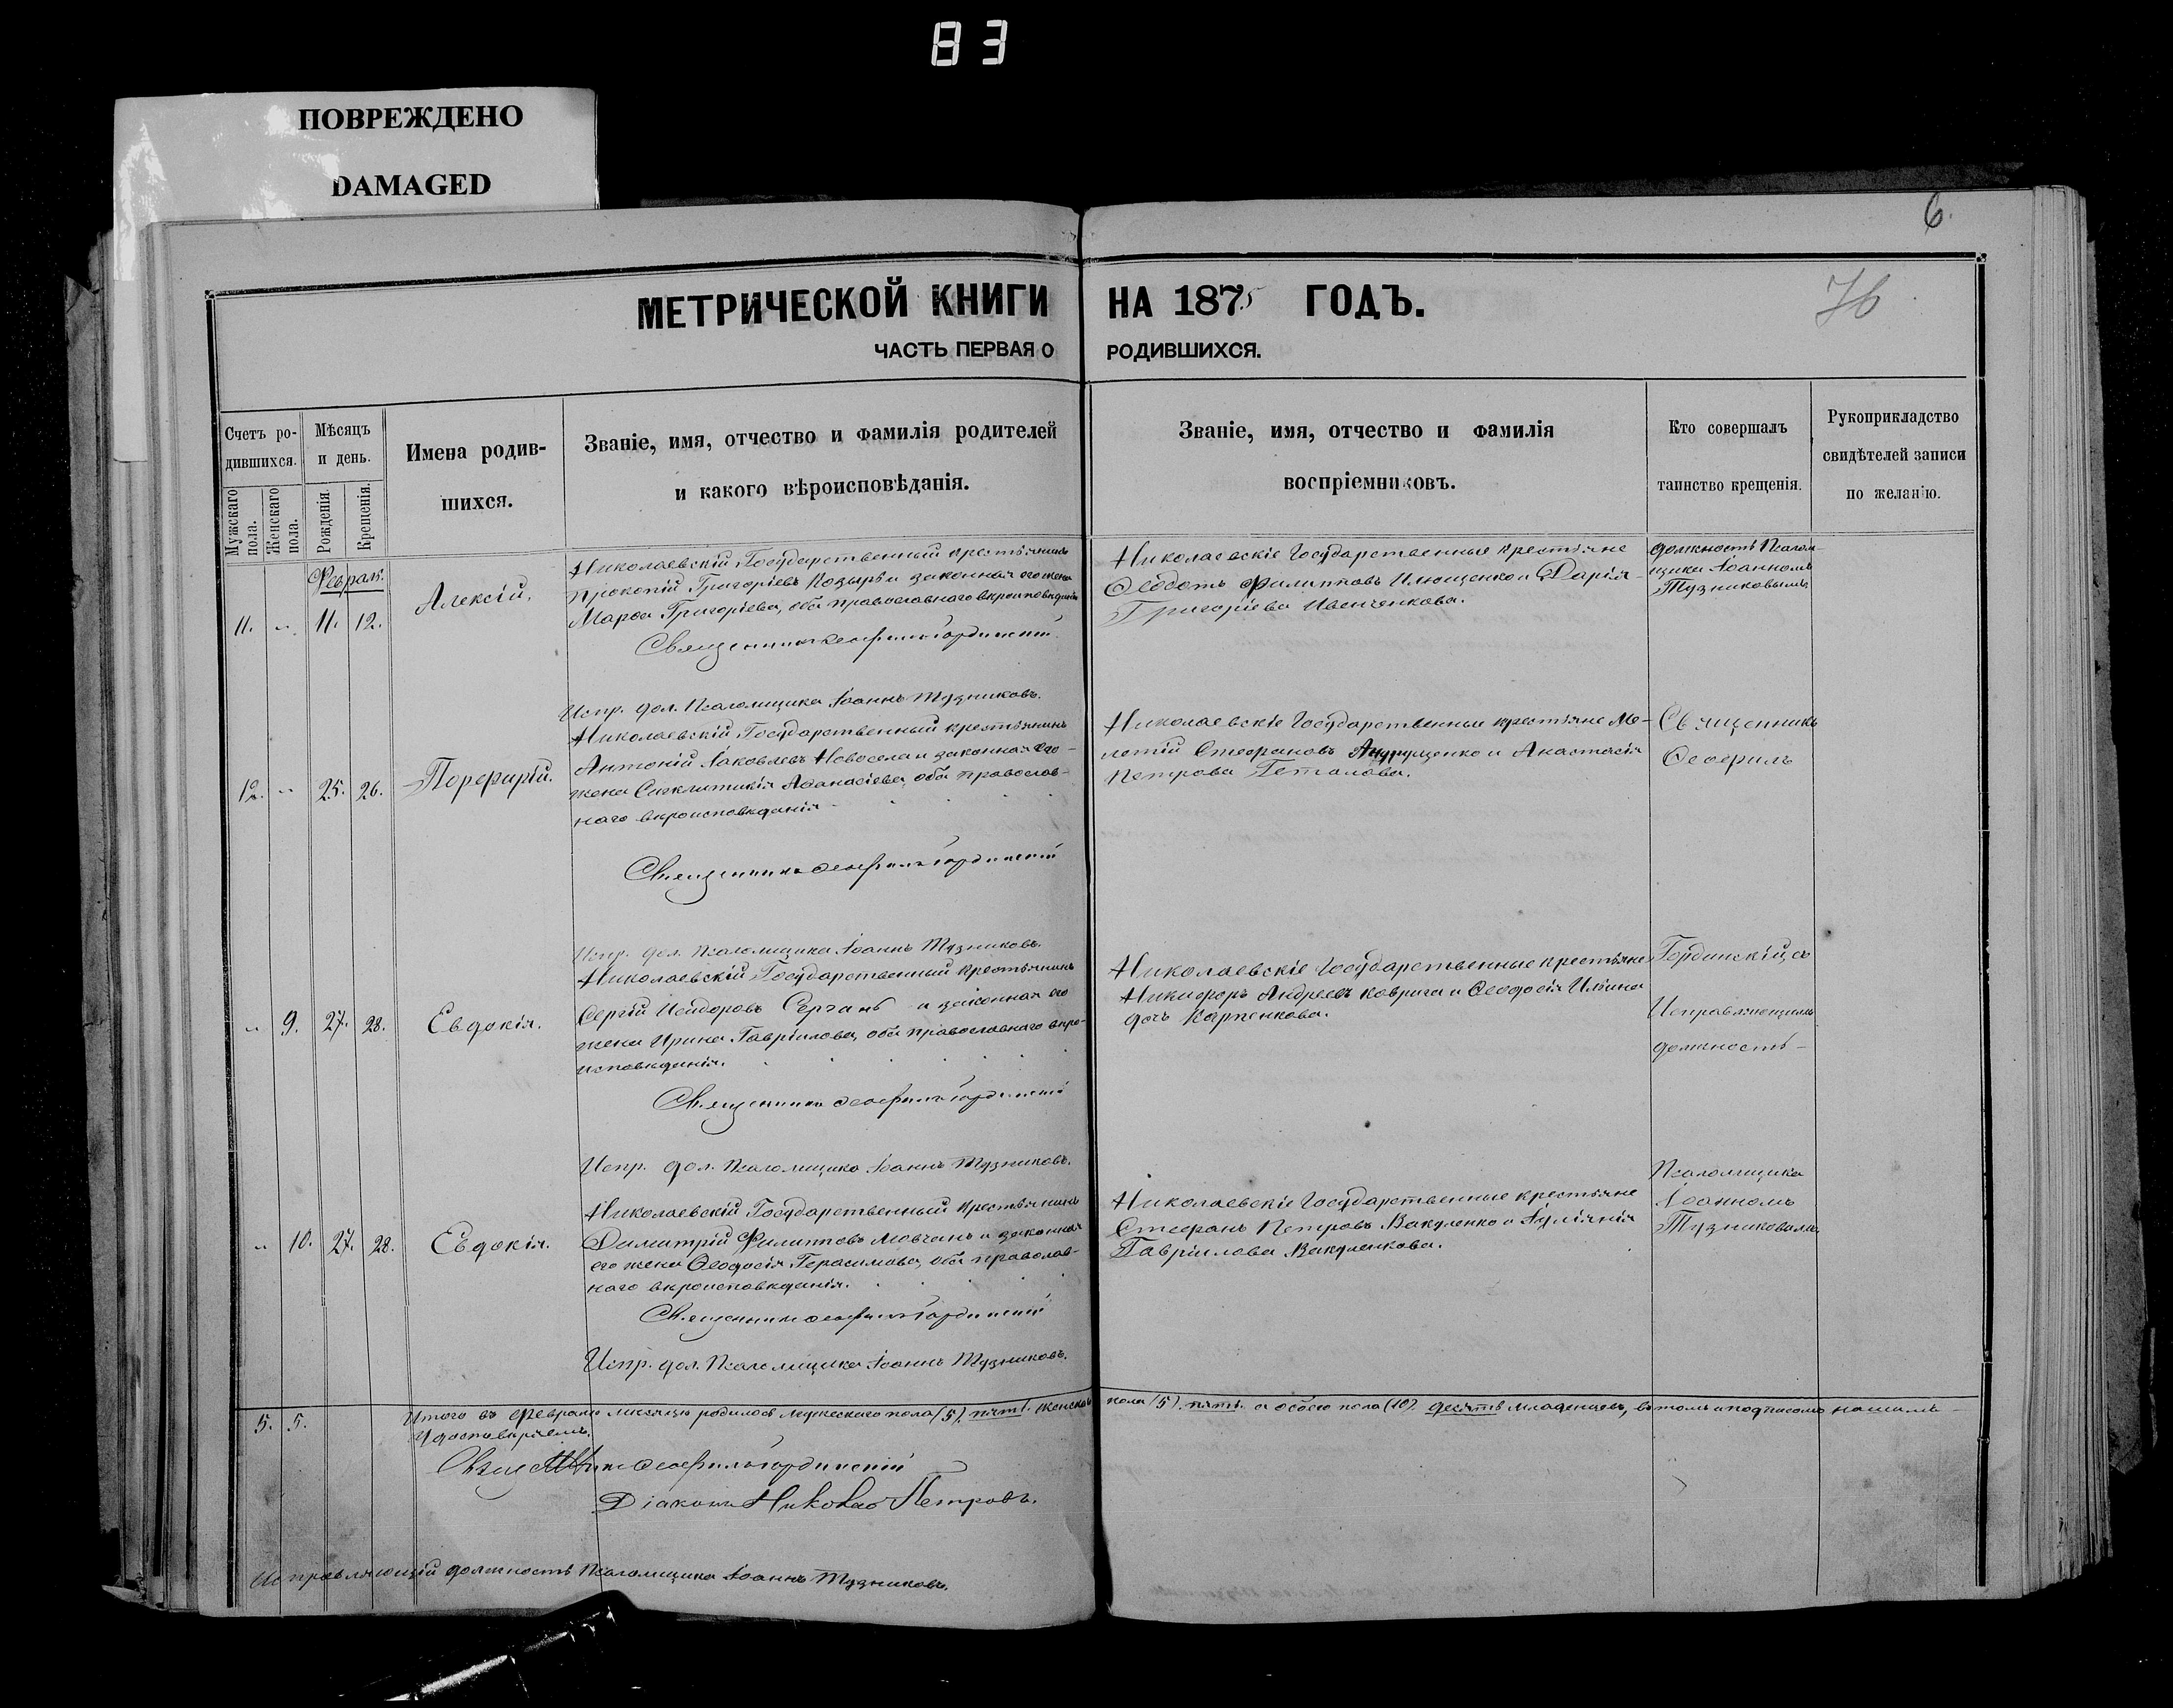 83
ПОВРЕЖДЕНО
DAMAGED
6.
76
МЕТРИЧЕСКОЙ КНИГИ НА 1875 ГОДЪ.
ЧАСТЬ ПЕРВАЯ О РОДИВШИХСЯ.
Счетъ ро-
дившихся.
Мужскаго пола.
Женскаго пола.
Мѣсяцъ
и день.
Рожденія.
Крещенія.
Имена родив-
шихся.
Званіе, имя, отчество и фамилія родителей
и какого вѣроисповѣданія.
Званіе, имя, отчество и фамилія
воспріемниковъ.
Кто совершалъ
таинство крещенія.
Рукоприкладство
свидѣтелей записи
по желанію.
Февраль.
11. „ 11. 12.
Алексій.
Николаевскій Государственный крестьянинъ
Прокопій Григоріевъ Козырь и законная его жена
Марѳа Григоріева, оба православнаго вѣроисповѣданія
Священникъ Ѳеофилъ Гординскій
Испр. дол. Псаломщика Іоаннъ Тузниковъ.
Николаевскіе Государственные крестьяне
Ѳеодотъ Филипповъ Илющенко и Дарія
Григоріева Ивенченкова.
должность Псалом-
щика Іоанномъ
Тузниковымъ.
12. „ 25. 26.
Порфирій.
Николаевскій Государственный крестьянинъ
Антоній Іаковлевъ Новосела и законная его
жена Синклитикія Аѳанасіева, оба православ-
наго вѣроисповѣданія
Священникъ Ѳеофилъ Гординскій
Испр. дол. Псаломщика Іоаннъ Тузниковъ.
Николаевскіе Государственные крестьяне Ме-
летій Стефановъ Андрущенко и Анастасія
Петрова Геталова.
Священникъ
Ѳеофилъ
„ 9. 27. 28.
Евдокія.
Николаевскій Государственный крестьянинъ
Сергій Исидоровъ Сергань и законная его
жена Ирина Гавріилова, оба православнаго вѣро-
исповѣданія.
Священникъ Ѳеофилъ Гординскій
Испр. дол. Псаломщика Іоаннъ Тузниковъ.
Николаевскіе Государственные крестьяне
Никифоръ Андреевъ Коврига и Ѳеодосія Ильина
дочь Карпенкова.
Гординскій, съ
Исправляющимъ
должность
„ 10. 27. 28.
Евдокія.
Николаевскій Государственный крестьянинъ
Димитрій Филипповъ Мовчанъ и законная
его жена Ѳеодосія Герасимова, оба православ-
наго вѣроисповѣданія.
Священникъ Ѳеофилъ Гординскій
Испр. дол. Псаломщика Іоаннъ Тузниковъ.
Николаевскіе Государственные крестьяне
Стефанъ Петровъ Вакуленко и Іуліянія
Гавріилова Вакуленкова.
Псаломщика
Іоанномъ
Тузниковымъ
5. 5.
Итого въ Февралѣ мѣсяцѣ родилось мужескаго пола (5). пять. женскаго пола (5). пять. а обоего пола (10). десять младенцевъ, въ томъ и подписомъ нашимъ
удостовѣряемъ.
Священникъ Ѳеофилъ Гординскій
Діаконъ Николай Петровъ.
Исправляющій должность Псаломщика Іоаннъ Тузниковъ.